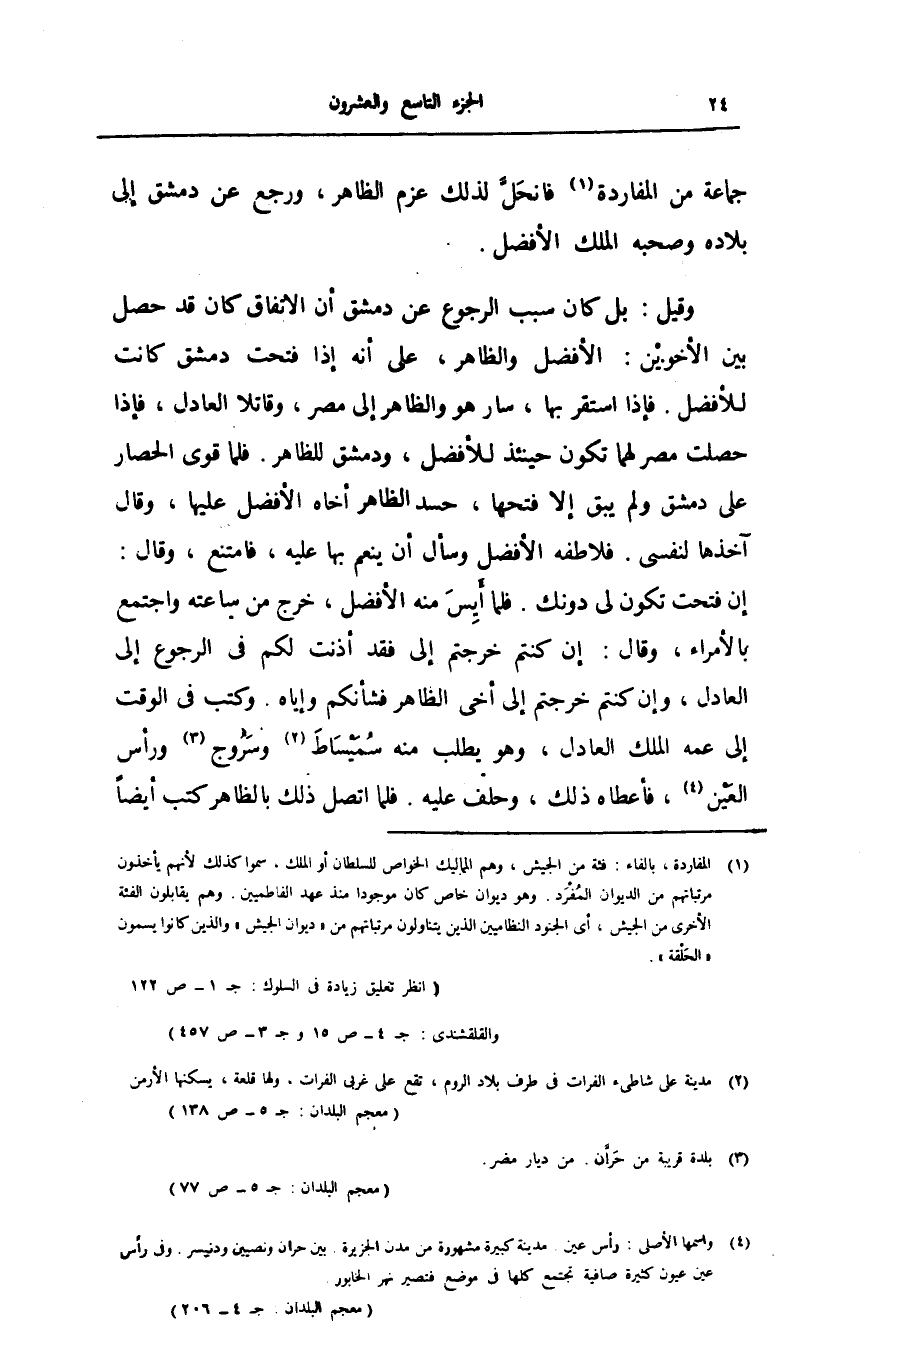 ٢٤
الجزء التاسع والعشرون
جماعة من المفاردة(١) فانحَلَّ لذلك عزم الظاهر ، ورجع عن دمشق إلى
بلاده وصحبه الملك الأفضل .
وقيل : بل كان سبب الرجوع عن دمشق أن الاتفاق كان قد حصل
بين الأخويْن : الأفضل والظاهر ، على أنه إذا فتحت دمشق كانت
للأفضل . فإذا استقر بها ، سار هو والظاهر إلى مصر ، وقاتلا العادل ، فإذا
حصلت مصر لهما تكون حينئذ للأفضل ، ودمشق للظاهر . فلما قوى الحصار
على دمشق ولم يبق إلا فتحها ، حسد الظاهر أخاه الأفضل عليها ، وقال
آخذها لنفسى . فلاطفه الأفضل وسأل أن ينعم بها عليه ، فامتنع ، وقال :
إن فتحت تكون لى دونك . فلما أَيِسَ منه الأفضل ، خرج من ساعته واجتمع
بالأمراء ، وقال : إن كنتم خرجتم إلى فقد أذنت لكم فى الرجوع إلى
العادل ، وإن كنتم خرجتم إلى أخى الظاهر فشأنكم وإياه . وكتب فى الوقت
إلى عمه الملك العادل ، وهو يطلب منه سُمَيْسَاطَ (٢) وسَرُوج (٣) ورأس
العَيْن (٤) ، فأعطاه ذلك ، وحلف عليه . فلما اتصل ذلك بالظاهر كتب أيضاً
(١) المفاردة ، بالفاء : فئة من الجيش ، وهم المماليك الخواص للسلطان أو الملك . سموا كذلك لأنهم يأخذون
مرتباتهم من الديوان المُفْرَد . وهو ديوان خاص كان موجودا منذ عهد الفاطميين . وهم يقابلون الفئة
الأخرى من الجيش ، أى الجنود النظاميين الذين يتناولون مرتباتهم من « ديوان الجيش » والذين كانوا يسمون
« الحَلْقة » .
( انظر تعليق زيادة فى السلوك : جـ ١ ـ ص ١٢٢
والقلقشندى : جـ ٤ ـ ص ١٥ و جـ ٣ ـ ص ٤٥٧)
(٢) مدينة على شاطىء الفرات فى طرف بلاد الروم ، تقع على غربى الفرات . ولها قلعة ، يسكنها الأرمن
(معجم البلدان : جـ ٥ ـ ص ١٣٨ )
(٣) بلدة قريبة من حَرَّان . من ديار مضر .
(معجم البلدان : جـ ٥ ـ ص ٧٧)
(٤) واسمها الأصلى : رأس عين . مدينة كبيرة مشهورة من مدن الجزيرة . بين حران ونصيبين ودنيسر . وفى رأس
عين عيون كثيرة صافية تجتمع كلها فى موضع فتصير نهر الخابور .
(معجم البلدان . جـ ٤ ـ ٢٠٦)